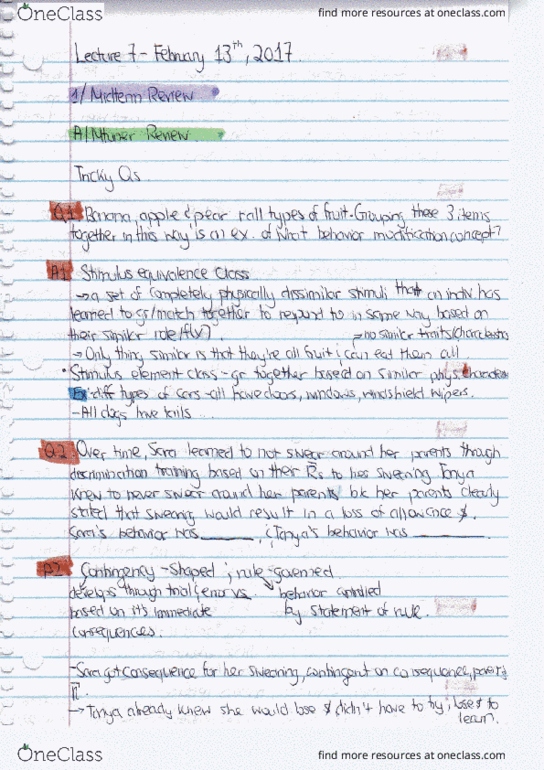 OneClass
find more resources at oneclass.com
Lecture 7 - February 13th, 2017
1/ Midterm Review
A/ Mtuner Renew
Tricky Qs
Q.1 Banana, apple & pear r all types of fruit. Grouping these 3 items
together in this way is an ex. of what behavior modification concept?
A1 Stimulus equivalence Class
→ a set of completely physically dissimilar stimuli that an indiv has
learned to gr/match together to respond to in same way based on
their similar role/f(x). → no similar traits/characteristics
→ Only thing similar is that they're all fruit; can eat them all
• Stimulus element class - gr together based on similar phys. characters
Ex: diff types of cars - all have doors, windows, windshield wipers.
- All dogs have tails...
Q.2 Over time, Sara learned to not swear around her parents through
discrimination training based on their Rs to her swearing. Tanya
knew to never swear around her parents b/c her parents clearly
stated that swearing would result in a loss of allowance $.
Sara's behavior was ______, ; Tanya's behavior was ______.
A2 Contingency - Shaped ; rule-governed
develops through trial & error vs. behavior controlled
based on it's immediate by statement of rule.
consequences.
- Sara got consequence for her swearing, contingent on consequence, parents
→ Tanya already knew she would lose $ didn't have to try ; lose $ to
learn.
OneClass
find more resources at oneclass.com